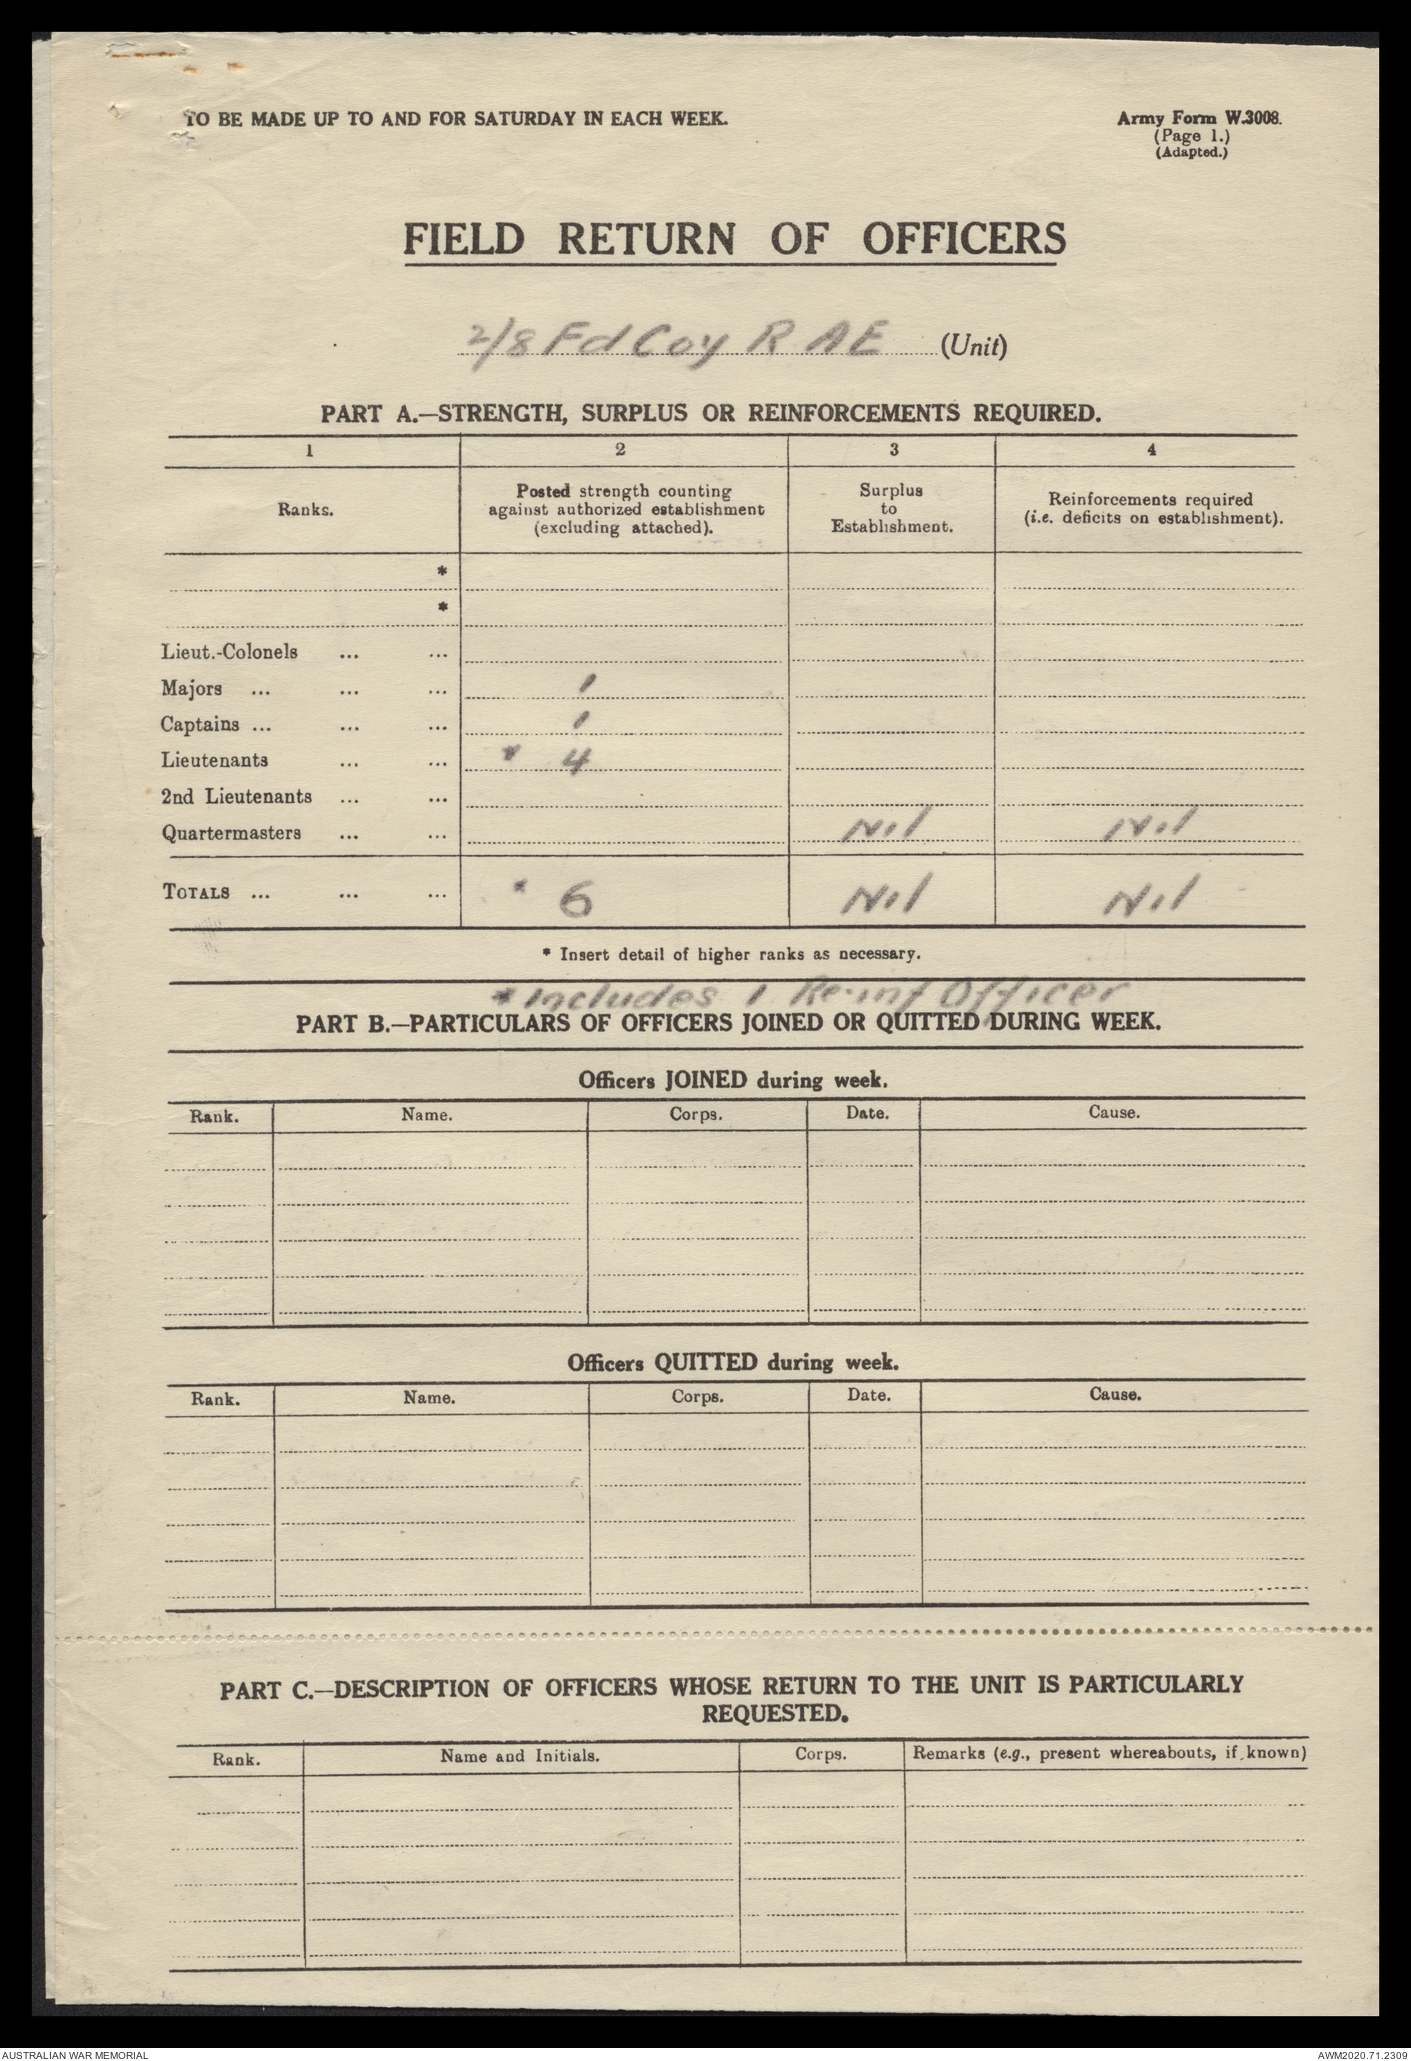 TO BE MADE UP TO AND FOR SATURDAY IN EACH WEEK.
Army Form W.3008.
(Page 1.)
(Adapted.)
FIELD RETURN OF OFFICERS
2/8 Fd Coy R A E (Unit)
PART A.—STRENGTH, SURPLUS OR REINFORCEMENTS REQUIRED.
1 2 3 4
Ranks. Posted strength counting against authorized establishment (excluding attached). Surplus to Establishment. Reinforcements required (i.e. deficits on establishment).
*
*
Lieut.-Colonels ... ...
Majors ... ... ... 1
Captains ... ... ... 1
Lieutenants ... ... * 4
2nd Lieutenants ... ...
Quartermasters ... ... Nil Nil
TOTALS ... ... ... * 6 Nil Nil
* Insert detail of higher ranks as necessary.
* Includes 1 Reinf Officer
PART B.—PARTICULARS OF OFFICERS JOINED OR QUITTED DURING WEEK.
Officers JOINED during week.
Rank. Name. Corps. Date. Cause.
Officers QUITTED during week.
Rank. Name. Corps. Date. Cause.
PART C.—DESCRIPTION OF OFFICERS WHOSE RETURN TO THE UNIT IS PARTICULARLY
REQUESTED.
Rank. Name and Initials. Corps. Remarks (e.g., present whereabouts, if known)
AUSTRALIAN WAR MEMORIAL
AWM2020.71.2309